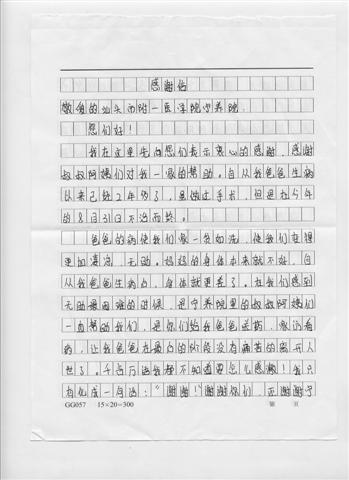 感谢信
敬爱的汕头市附一医学院宁养院
您们好！
我在这里先向您们表示衷心的感谢，感谢
叔叔阿姨们对我一家的帮助。自从我爸爸生病
以来已经2年多了，虽做过手术，但是在今年
的8月31日不治而终。
爸爸的病使我们家一贫如洗，使我们变得
更加凄凉，无助。妈妈的身体本来就不好，自
从我爸爸生病后，身体就更差了。在我们感到
无助最困难的时候，是宁养院里的叔叔阿姨们
一直帮助我们，是你们给我爸爸送药，教治看
病，让我爸爸在最后的阶段没有痛苦的离开人
世了。千言万语我都不知道要怎么感激！我只
有化成一句话：“谢谢！”谢谢你们，还谢谢宁
GG057 15×20=300 第 页